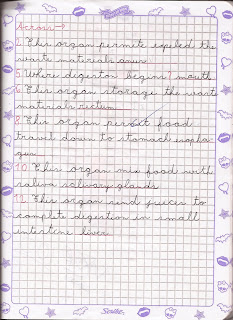 Across →
2. This organ permite expeled the
waste materials anus
5. Where digestion begins? mouth
6. This organ storage the waste
materials rectum
8. This organ permit food
travel down to stomach esopha-
gus
10. This organ mix food with
saliva salivary glands
12. This organ send juices to
complete digestion in small
intestine liver
Scribe